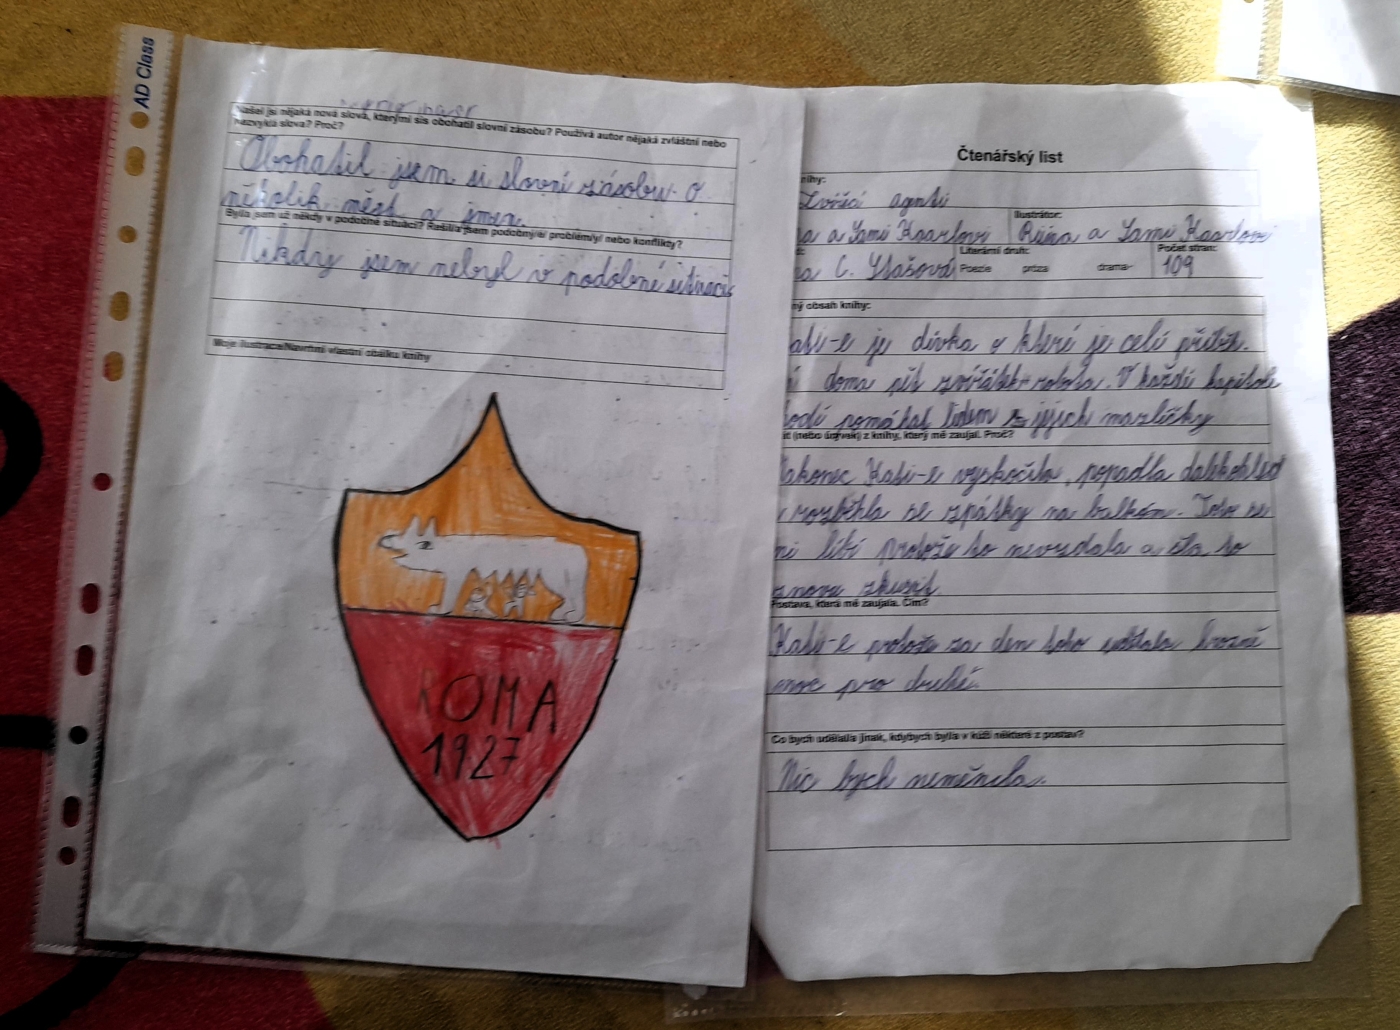 AD Class
Našel jsi nějaká nová slova, kterými sis obohatil slovní zásobu? Používá autor nějaká zvláštní nebo
nezvyklá slova? Proč?
Obohatil jsem si slovní zásobu o
několik měst a jmen.
Byl/a jsem už někdy v podobné situaci? Řešil/a jsem podobný/é/ problém/y/ nebo konflikty?
Nikdy jsem nebyl v podobné situaci
Moje ilustrace/Navrhni vlastní obálku knihy
ROMA
1927
Čtenářský list
nihy:
Zvířecí agenti
Ilustrátor:
a a Sami Kaarlovi
Riina a Sami Kaarlovi
Literární druh:
Počet stran:
a C. Slašová
Poezie próza drama
109
ý obsah knihy:
ati-e je dívka o které je celý příběh.
doma pět zvířátek-robotů. V každé kapitole
hodí pomáhat lidem s jejich mazlíčky
it (nebo úryvek) z knihy, který mě zaujal. Proč?
akonec Kati-e vyskočila, popadla dalekohled
rozběhla se zpátky na balkón. Toto se
mi líbí protože to nevzdala a šla to
znovu zkusit
Postava, která mě zaujala. Čím?
Kati-e protože za den toho udělala hrozně
moc pro druhé.
Co bych udělal/a jinak, kdybych byl/a v kůži některé z postav?
Nic bych neměnila.